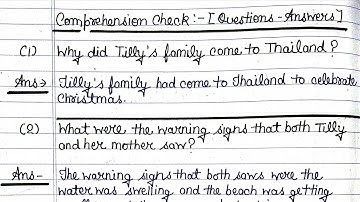 Comprehension Check:- [Questions-Answers]
(1) Why did Tilly's family come to Thailand?
Ans→ Tilly's family had come to Thailand to celebrate
Christmas.
(2) What were the warning signs that both Tilly
and her mother saw?
Ans- The warning signs that both saws were the
water was swelling and the beach was getting